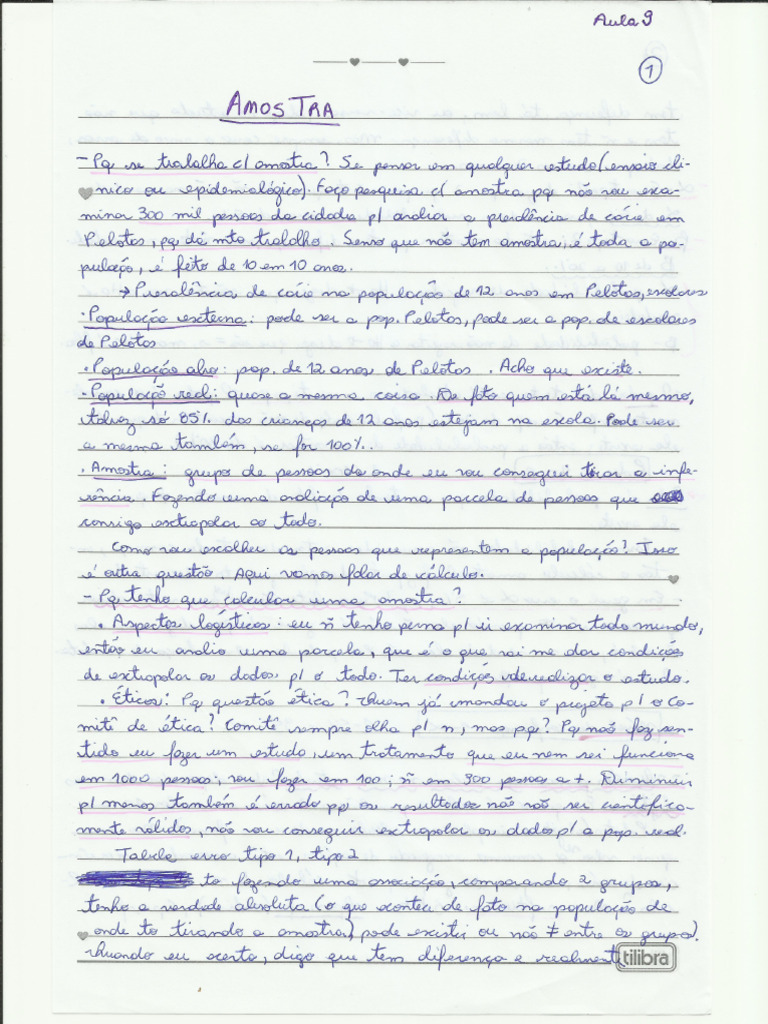 Aula 9
1
AMOSTRA
- Pq se trabalha c/ amostra? Se pensar em qualquer estudo (ensaio clí-
nico ou epidemiológico). Faço pesquisa c/ amostra pq não vou exa-
minar 300 mil pessoas da cidade p/ avaliar a prevalência de cárie em
Pelotas, pq dá mto trabalho. Senso que não tem amostra, é toda a po-
pulação, é feito de 10 em 10 anos.
→ Prevalência de cárie na população de 12 anos em Pelotas, escolares
· População externa: pode ser a pop. Pelotas, pode ser a pop. de escolares
de Pelotas
· População alvo: pop. de 12 anos de Pelotas. Acho que existe.
· População real: quase a mesma coisa. De fato quem está lá mesmo,
talvez só 85% das crianças de 12 anos estejam na escola. Pode ser
a mesma também, se for 100%.
· Amostra: grupo de pessoas da onde eu vou conseguir tirar a infe-
rência. Fazendo uma avaliação de uma parcela de pessoas que
consigo extrapolar ao todo.
Como vou escolher as pessoas que representem a população? Isso
é outra questão. Aqui vamos falar de cálculo.
- Pq tenho que calcular uma amostra?
· Aspectos logísticos: eu ñ tenho perna p/ ir examinar todo mundo,
então eu avalio uma parcela, que é o que vai me dar condições
de extrapolar os dados p/ o todo. Ter condições de realizar o estudo.
· Éticos: Pq questão ética? Quem já mandou o projeto p/ o Co-
mitê de ética? Comitê sempre olha p/ n, mas pq? Pq não faz sen-
tido eu fazer um estudo, um tratamento que eu nem sei funciona
em 1000 pessoas; vou fazer em 100; ñ em 900 pessoas a +. Diminuir
p/ menos também é errado pq os resultados não vão ser cientifica-
mente válidos, não vou conseguir extrapolar os dados p/ a pop. real.
Tabela erro tipo 1, tipo 2
to fazendo uma associação, comparando 2 grupos,
tenho a verdade absoluta (o que acontece de fato na população de
onde to tirando a amostra) pode existir ou não ≠ entre os grupos).
Quando eu acerto, digo que tem diferença e realment
tilibra